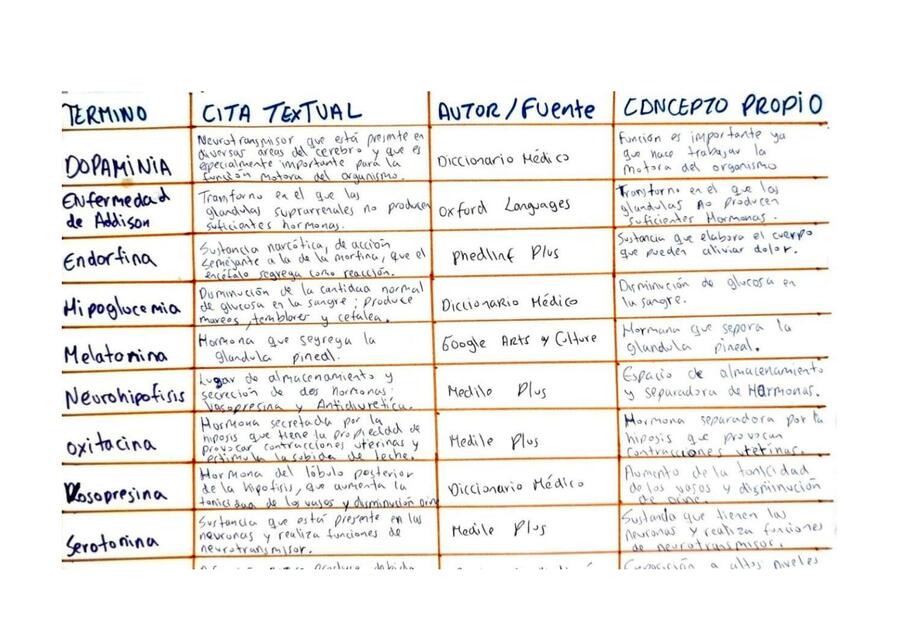 TERMINO
CITA TEXTUAL
AUTOR/Fuente
CONCEPTO PROPIO
DOPAMINIA
Neurotransmisor que está presente en
diversas áreas del cerebro y que es
especialmente importante para la
función motora del organismo.
Diccionario Médico
Función es importante ya
que hace trabajar la
motora del organismo
Enfermedad
de Addison
Transtorno en el que las
glandulas suprarrenales no producen
suficientes hormonas.
Oxford Languages
Transtorno en el que las
glandulas no producen
suficientes Hormonas.
Endorfina
Sustancia narcótica, de acción
semejante a la de la morfina, que el
encéfalo segrega como reacción.
Plus
Sustancia que elabora el cuerpo
que pueden aliviar dolor.
Hipoglucemia
Disminución de la cantidad normal
de glucosa en la sangre; produce
mareos, temblores y cefalea.
Diccionario Médico
Disminución de glucosa en
la sangre.
Melatonina
Hormona que segrega la
glandula pineal.
Google Arts y Culture
Hormana que sepora la
glandula pineal.
Neurohipofisis
Lugar de almacenamiento y
secreción de dos hormonas:
Vasopresina y Antidiuretica.
Medilo Plus
Espacio de almacenamiento
y separadora de Hormonas.
oxitacina
Hormona secretada por la
hiposis que tiene la propiedad de
provocar contracciones uterinas y
estimula la subida de leche.
Medile Plus
Hormona separadora por la
hiposis que provocan
contracciones uterinas.
Vosopresina
Hormona del lóbulo posterior
de la hipofisis, que aumenta la
tonicidad de los vasos y disminución
Diccionario Médico
Aumento de la tonicidad
de los vasos y disminución
de orine.
Serotonina
Sustancia que está presente en las
neuronas y realiza funciones de
neurotransmisor.
Medile Plus
Sustancia que tienen las
neuronas y realiza funciones
de neurotransmisor.
a altos niveles